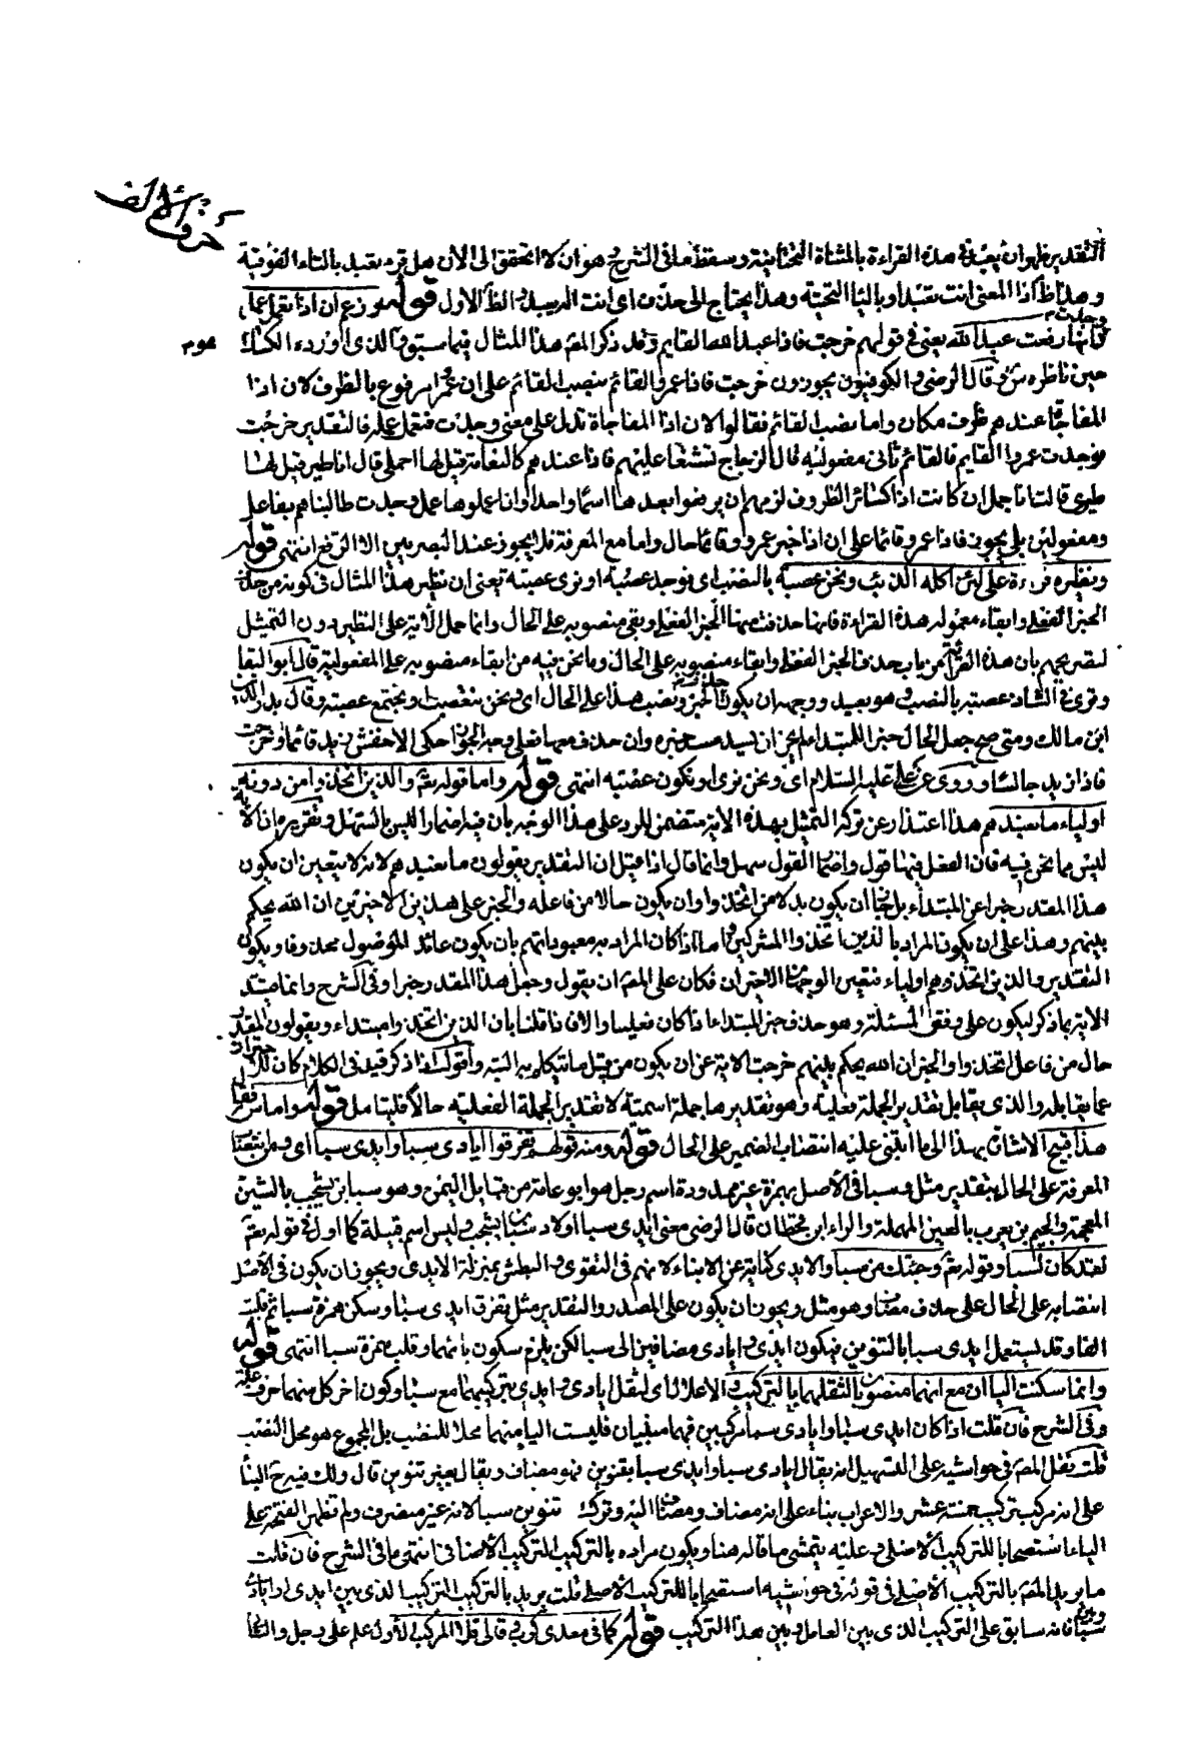 حرف الألف
التقدير ظهر ان يعبد في هذه القراءة بالمثناة التحتانية وسقط ما في الشرح هو ان لا اتحقق الى الآن هل قرء نعبد بالتاء الفوقية
وهذا ظ اذا المعنى انت تعبد او بالياء التحتية وهذا يحتاج الى حذف اى انت الذي يعبد والظ الاول قوله وزعم ان اذا تعمل عمل
وجدت وانها رفعت عبد الله يعنى في قولهم خرجت فاذا عبد الله القايم وقد ذكر المص هذا المثال فيما سبق والذى اورده الكسائى
حين ناظره س وقال الرضى والكوفيون يجوزون خرجت فاذا عمرو القائم بنصب القائم على ان عمرا مرفوع بالظرف لان اذا
المفاجاة عندهم ظرف مكان واما نصب القائم فقالوا لان اذا المفاجاة تدل على معنى وجدت فتعمل عمله فالتقدير خرجت
فوجدت عمروا القايم فالقائم ثانى مفعوليه قال الزجاج تشنيعا عليهم فاذا عندهم كالنعامة قيل لها احملى قال انا طير قيل لها
طيرى قالت انا جمل ان كانت اذا كسائر الظروف لزمهم ان يرفعوا بعدها اسما واحدا وان اعملوها عمل وجدت طالبناهم بفاعل
ومفعولين بلى يجوز فاذا عمرو قائما على ان اذا خبر عمرو وقائما حال واما مع المعرفة فلا يجوز عند البصريين الا الرفع انتهى قوله
ونظيره قراءة على لئن اكله الذئب ونحن عصبة بالنصب اى نوجد عصبة او نرى عصبة يعنى ان نظير هذا المثال في كونه من حذف
الخبر الفعلى وابقاء معموله هذه القراءة فانها حذفت منها الخبر الفعلى وبقى منصوبه على الحال وانما حمل الآية على النظير دون التمثيل
لتصريحهم بان هذه القراءة من باب حذف الخبر الفعلى وابقاء منصوبه على الحال وما نحن فيه من ابقاء منصوبه على المفعولية قال ابو البقا
وقرئ في الشاذ عصبة بالنصب وهو بعيد ووجهه ان يكون حذف الخبر ونصب هذا على الحال اى ونحن نتعصب او نجتمع عصبة وقال بدر الدين
ابن مالك ومتى صح جعل الحال خبرا للمبتداء لم يجز ان تسد مسد خبره وان حذف معها فعلى وجه الجواز حكى الاخفش زيد قائما وخرجت
فاذا زيد جالسا وروى عن على عليه السلام اى ونحن نرى او نكون عصبة انتهى قوله واما قوله تعم والذين اتخذوا من دونه
اولياء ما نعبدهم هذا اعتذار عن تركه التمثيل بهذه الاية متضمن للرد على هذا الوجه بان فيه اضمارا ليس بالسهل وتقريره ان الآية
ليس مما نحن فيه فان الفعل فيها قول واضمار القول سهل وانما قال اذا قيل ان التقدير يقولون ما نعبدهم لانه لا يتعين ان يكون
هذا المقدر خبرا عن المبتداء بل يجوز ان يكون بدلا من اتخذوا وان يكون حالا من فاعله والخبر على هذين الاخيرين ان الله يحكم
بينهم وهذا على ان يكون المراد بالذين اتخذوا المشركين واما اذا كان المراد به معبوداتهم بان يكون عائد الموصول محذوفا ويكون
التقدير والذين اتخذوهم اولياء فتعين الوجهان الاخيران فكان على المص ان يقول وجعل هذا المقدر خبرا وفى الشرح وانما قيد
الاية بما ذكر ليكون على وفق المسئلة وهو حذف خبر المبتداء اذا كان فعليا والا فاذا قلنا بان الذين اتخذوا مبتداء ويقولون المقدر
حال من فاعل اتخذوا والخبر ان الله يحكم بينهم خرجت الاية عن ان يكون من قبل ما نتكلم به البتة واقول اذا ذكر قيد في الكلام كان للاحتراز
عما يقابله والذى يقابل تقدير الجملة فعلية وهو تقديرها جملة اسمية لا تقدير الجملة الفعلية حالا فليتامل قوله واما من فقد
هذا قبيح الاشارة بهذا الى ما ابتنى عليه انتصاب الضمير على الحال قوله ومنه قولهم تفرقوا ايادى سبا وايدى سبا اى ومن انتصاب
المعرفة على الحال بتقدير مثل وسبا في الأصل بهمزة غير ممدودة اسم رجل هو ابو عامة من قبايل اليمن وهو سبا بن يشجب بالشين
المعجمة والجيم بن يعرب بالعين المهملة والراء ابن قحطان قال الرضى معنى ايدى سبا اولاد سبا بن يشجب وليس اسم قبيلة كما اول في قوله تعم
لقد كان لسبا وقوله تعم وجئتك من سبا والايدى كناية عن الابناء لانهم في التقوى والبطش بمنزلة الايدى ويجوز ان يكون في الاصل
انتصابه على الحال على حذف مضاف وهو مثل ويجوز ان يكون على المصدر والتقدير مثل تفرق ايدى سبا وسكن همزة سبا ثم قلبت
الفا وقد يستعمل ايدى سبا بالتنوين فيكون ايدى وايادى مضافين الى سبا لكن يلزم سكون يائهما وقلب همزة سبا انتهى قوله
وانما سكنت الياان مع انهما منصوبان لثقلهما بالتركيب والاعلال اى لثقل ايادى وايدى بتركيبهما مع سبا وكون اخر كل منهما حرف علة
وفى الشرح فان قلت اذا كان ايدى سبا وايادى سبا مركبين فهما مبنيان فليست الياء منهما محلا للنصب بل المجموع هو محل النصب
قلت نقل المص في حواشيه على التسهيل انه يقال ايادى سبا وايدى سبا بتنوين فهو مضاف ويقال بغير تنوين قال ولك فيه ح البنا
على انه مركب تركيب خمسة عشر والاعراب بناء على انه مضاف ومضاف اليه وترك تنوين سبا لانه غير منصرف ولم تظهر الفتحة على
الياء استصحابا للتركيب الأصلى وعليه يتمشى ما قاله هنا ويكون مراده بالتركيب التركيب الأضافى انتهى ما في الشرح فان قلت
ما يريد المص بالتركيب الأصلى في قوله في حواشيه استصحابا للتركيب الأصلى قلت يريد بالتركيب التركيب الذى بين ايدى او ايادى
وبين سبا فانه سابق على التركيب الذى بين العامل وبين هذا التركيب قوله كما في معدى كرب قالى قلا المركب الاول علم على رجل والثانى